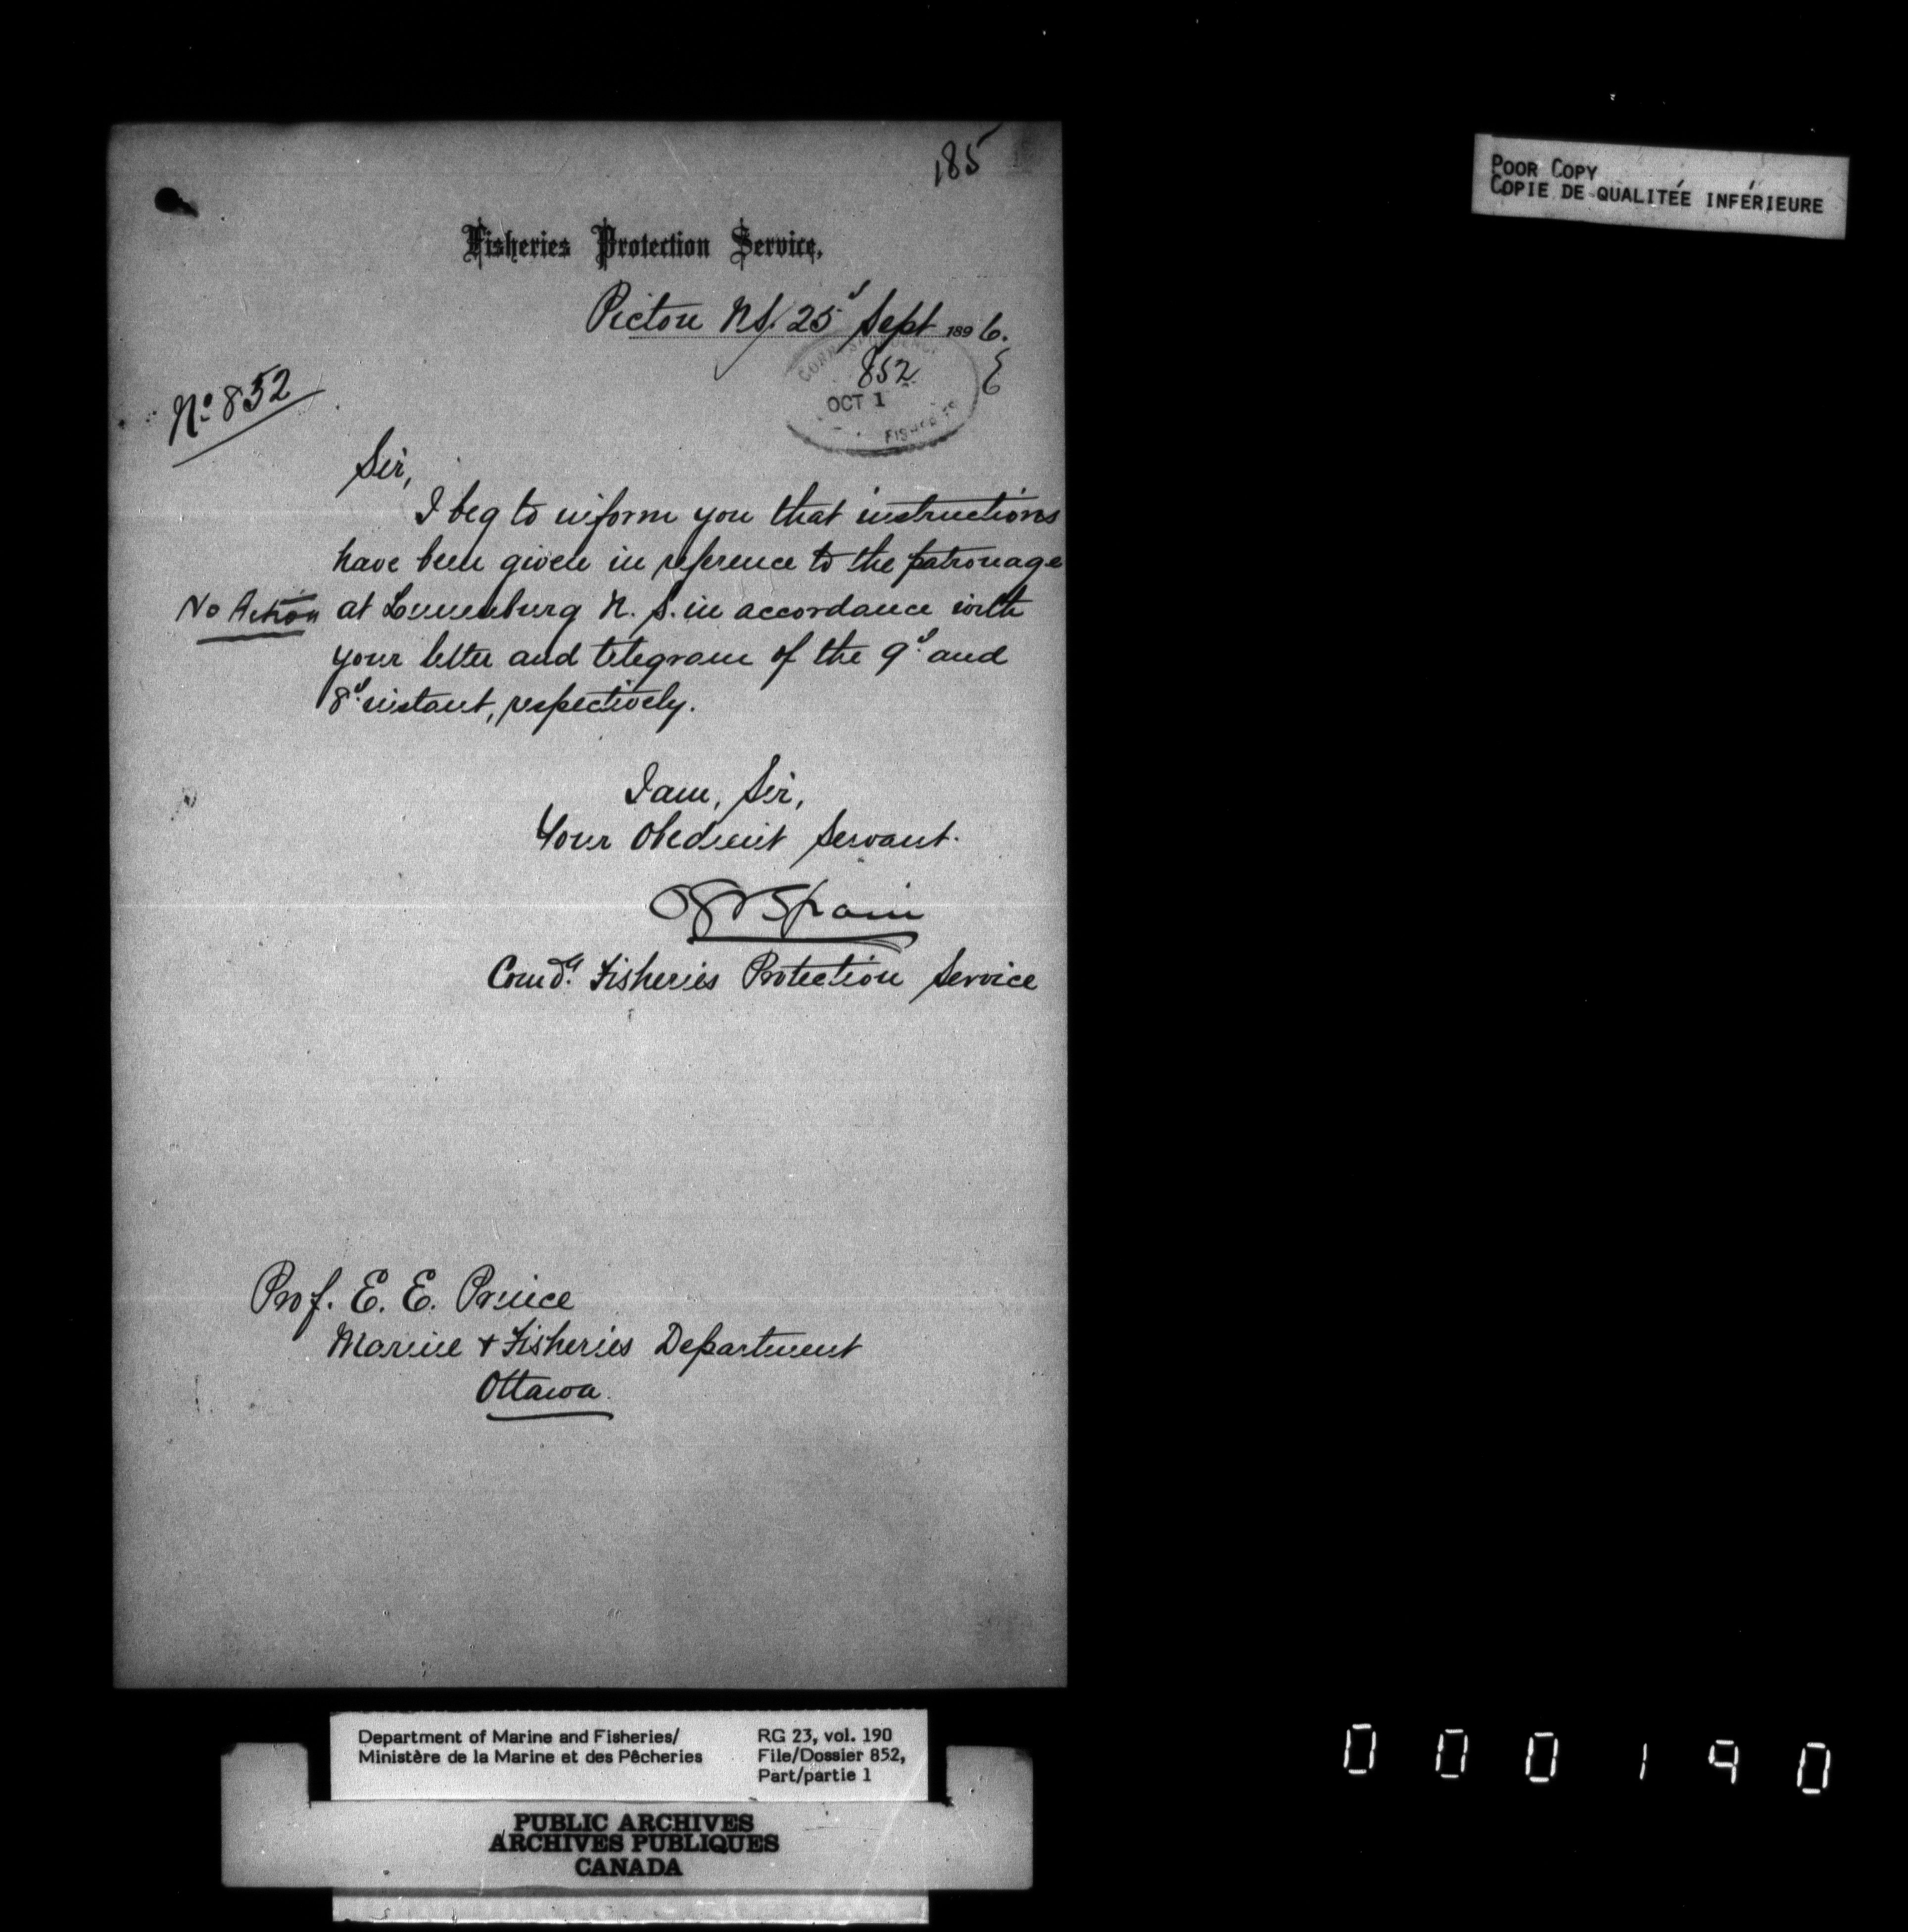 185
POOR COPY
COPIE DE QUALITÉE INFÉRIEURE
Fisheries Protection Service,
Pictou N.S. 25th Sept 1896.
CORRESPONDENCE
852
OCT 1
FISHERIES
No 852
Sir,
I beg to inform you that instructions
have been given in reference to the patronage
No Action
at Lunenburg N. S. in accordance with
your letter and telegram of the 9th and
8th instant, respectively.
I am, Sir,
Your Obedient Servant.
OGV Spain
Comdg. Fisheries Protection Service
Prof. E. E. Prince
Marine + Fisheries Department
Ottawa.
Department of Marine and Fisheries/
Ministère de la Marine et des Pêcheries
RG 23, vol. 190
File/Dossier 852,
Part/partie 1
PUBLIC ARCHIVES
ARCHIVES PUBLIQUES
CANADA
000190